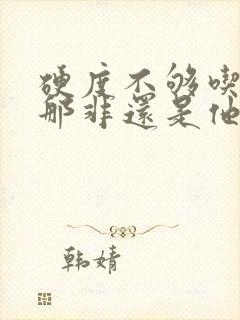 硬度不够吃
那非还是他
韩婧